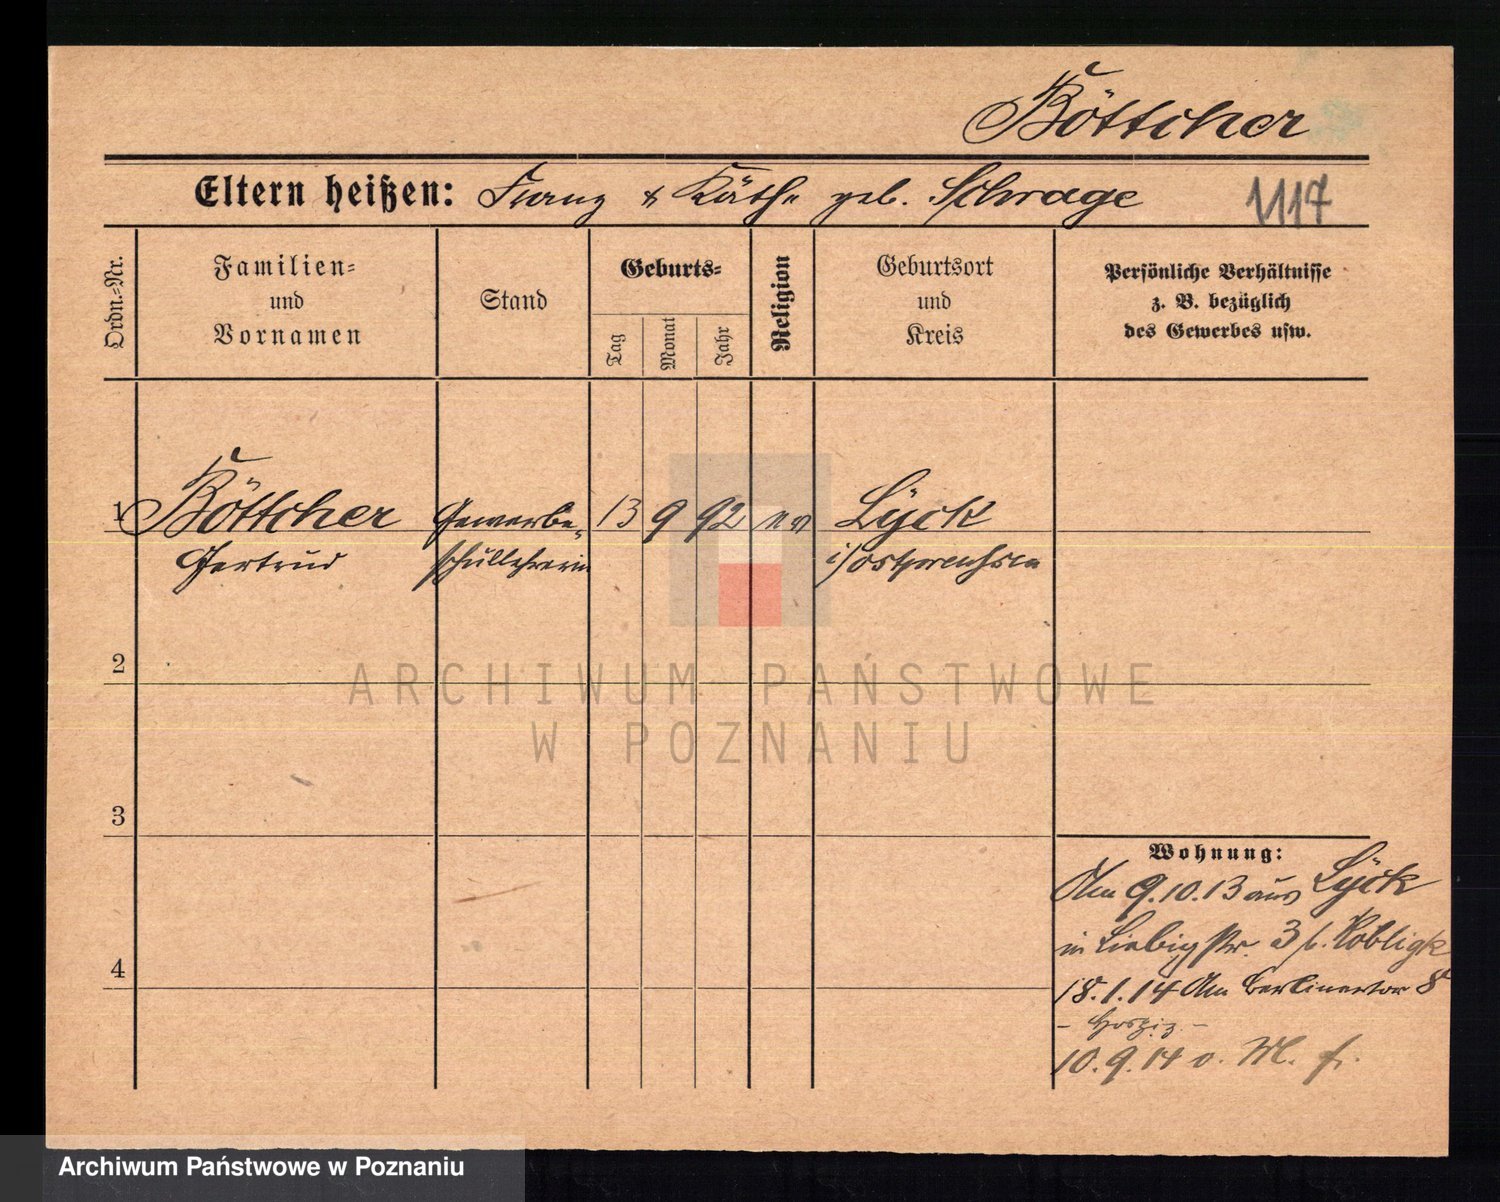 Böttcher
Eltern heißen: Franz & Käthe geb. Schrage 1117
Ordn.-Nr.
Familien-
und
Vornamen
Stand
Geburts-
Tag
Monat
Jahr
Religion
Geburtsort
und
Kreis
Persönliche Verhältnisse
z. B. bezüglich
des Gewerbes usw.
1 Böttcher Gewerbe- 13 9 92 ev Lyck
Gertrud schullehrerin i/Ostpreußen
2
ARCHIWUM PAŃSTWOWE
W POZNANIU
3
Wohnung:
Am 9.10.13 aus Lyck
in Liebigstr. 3 b.
4
18.1.14 Am Berlinertor 8
- Hospiz -
10.9.14 o. M. f.
Archiwum Państwowe w Poznaniu